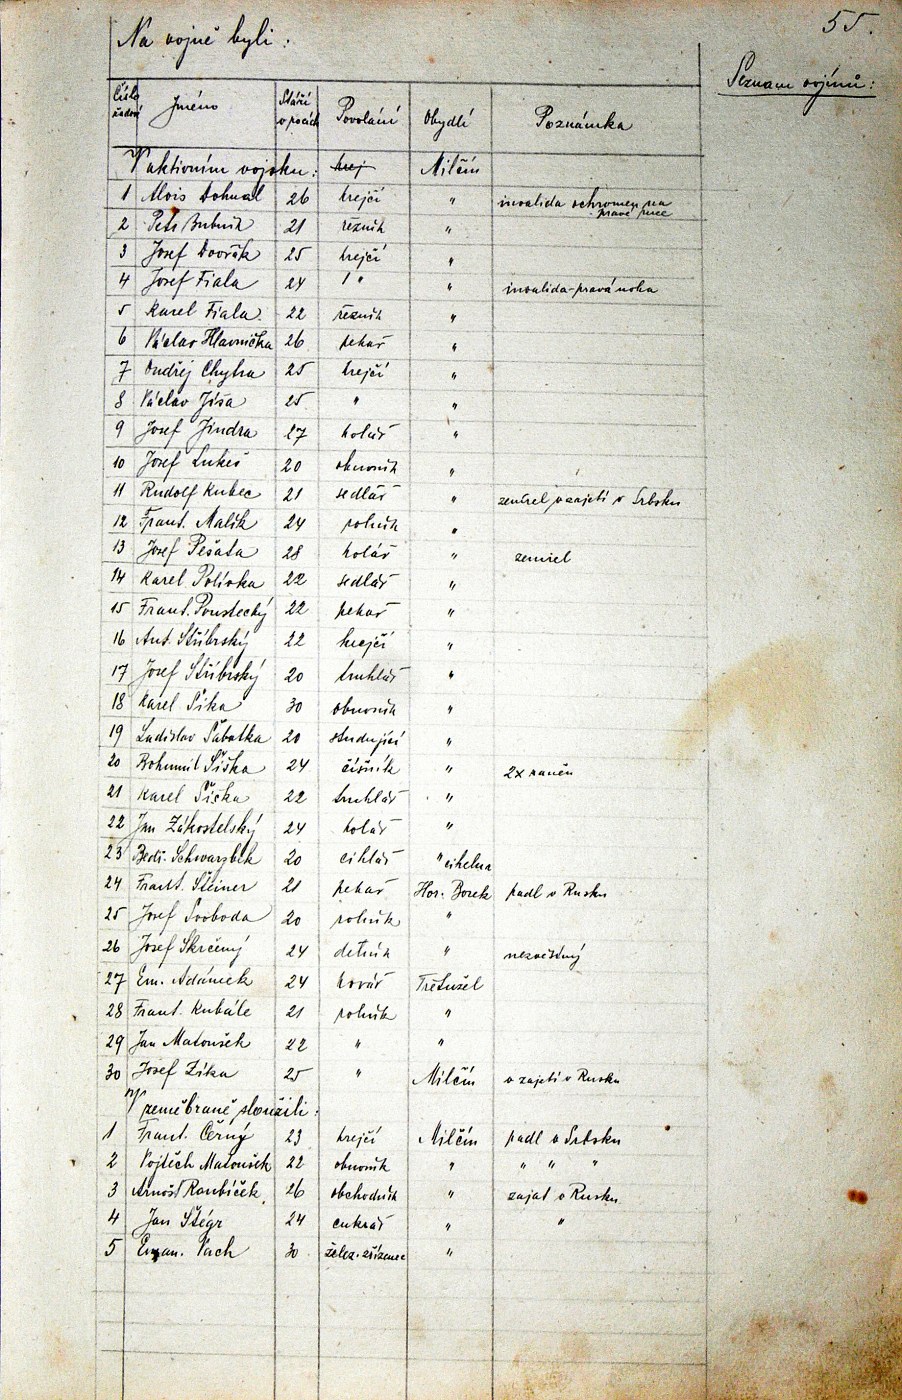 55.
Na vojně byli:
Seznam vojínů:
Číslo řadové Jméno Stáří v rocích Povolání Obydlí Poznámka
V aktivním vojsku: Milčín
1 Alois Dohnal 26 krejčí " invalida ochromen na pravé ruce
2 Petr Bubník 21 řezník "
3 Josef Dvořák 25 krejčí "
4 Josef Fiala 24 " " invalida-pravá noha
5 Karel Fiala 22 řezník "
6 Václav Hlavnička 26 pekař "
7 Ondřej Chyba 25 krejčí "
8 Václav Jíša 25 " "
9 Josef Jindra 27 kolář "
10 Josef Lukeš 20 obuvník "
11 Rudolf Kubec 21 sedlář " zemřel v zajetí v Srbsku
12 Frant. Malík 24 rolník "
13 Josef Pešata 28 kolář " zemřel
14 Karel Polívka 22 sedlář "
15 Frant. Poustecký 22 pekař "
16 Ant. Stříbrský 22 krejčí "
17 Josef Stříbrský 20 truhlář "
18 Karel Šika 30 obuvník "
19 Ladislav Sabatka 20 studující "
20 Bohumil Šiška 24 číšník " 2x raněn
21 Karel Šiška 22 truhlář "
22 Jan Zákostelský 24 kolář "
23 Bedř. Schwarzbek 20 cihlář " cihelna
24 Frant. Šteiner 21 pekař Hor. Borek padl v Rusku
25 Josef Svoboda 20 rolník "
26 Josef Skrčený 24 dělník " nezvěstný
27 Em. Adámek 24 kovář Třetužel
28 Frant. Kubále 21 rolník "
29 Jan Matoušek 22 " "
30 Josef Zíka 25 " Milčín v zajetí v Rusku
V zeměbraně sloužili:
1 Frant. Černý 23 krejčí Milčín padl v Srbsku
2 Vojtěch Matoušek 22 obuvník " " " "
3 Arnošt Roubíček 26 obchodník " zajat v Rusku
4 Jan Štégr 24 cukrář " "
5 Eman. Vach 30 želez. zřízenec "